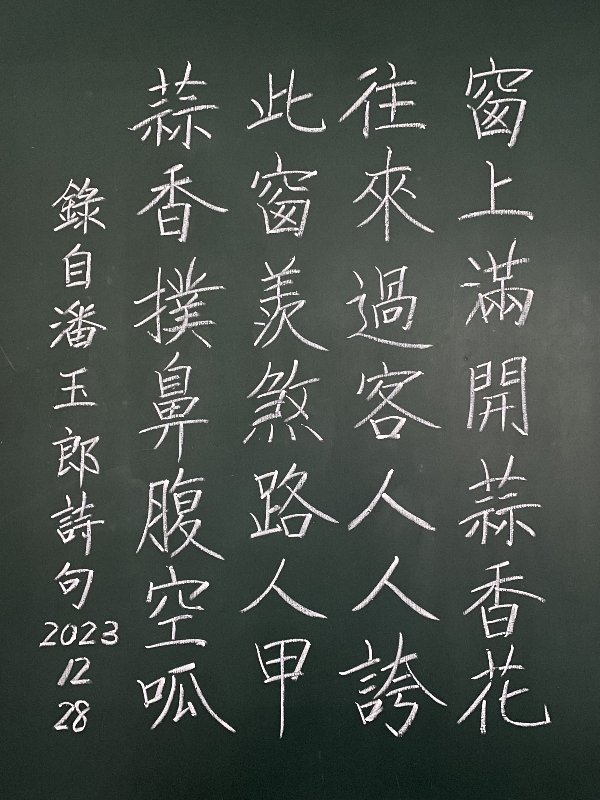 窗上滿開蒜香花
往來過客人人誇
此窗羨煞路人甲
蒜香撲鼻腹空呱
錄自潘玉郎詩句2023
12
28